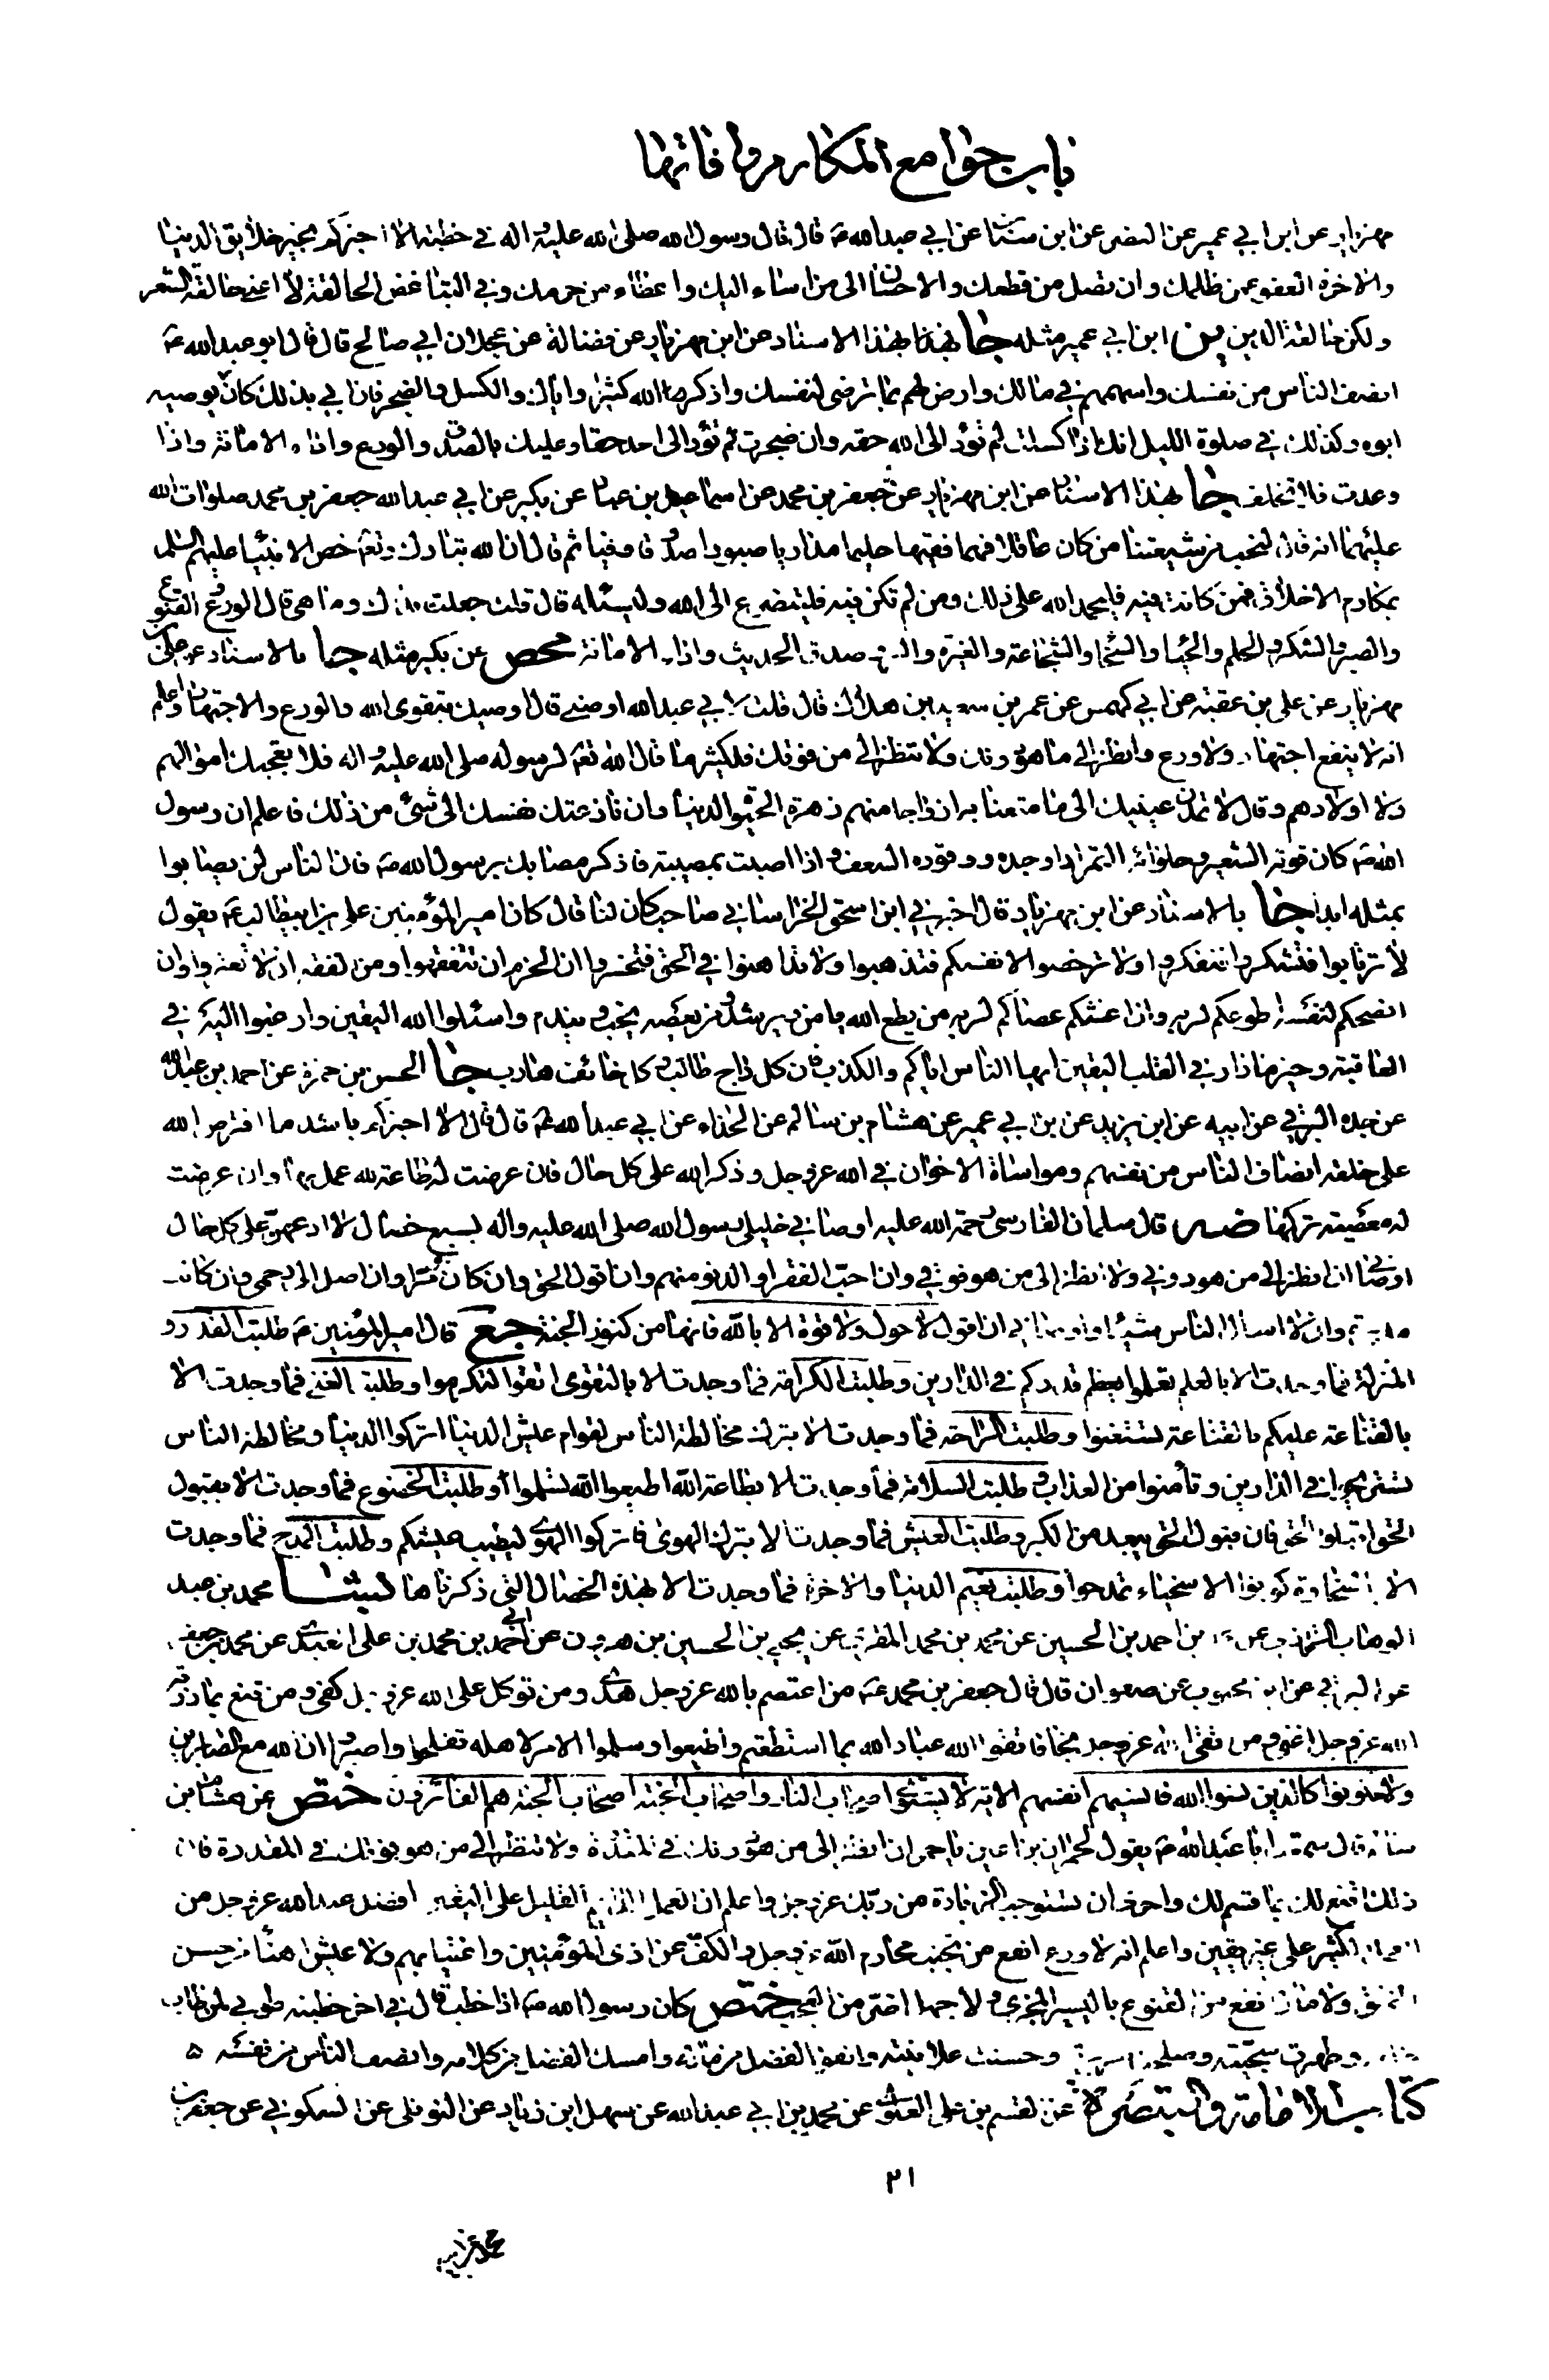 باب جوامع المكارم وافاتها
مهزيار عن ابن ابي عمير عن النضر عن ابن سنان عن ابي عبد الله ع قال قال رسول الله صلى الله عليه واله في خطبته الا اخبركم بخير خلايق الدنيا
والاخرة العفو عمن ظلمك وان تصل من قطعك والاحسان الى من اساء اليك واعطاء من حرمك وفي التباغض الحالقة لا اعني حالقة الشعر
ولكن حالقة الدين ين ابن ابي عمير مثله جا بهذا الاسناد عن ابن مهزيار عن فضالة عن عجلان ابي صالح قال قال ابو عبد الله ع
انصف الناس من نفسك واسهمهم في مالك وارض لهم بما ترضى لنفسك واذكر الله كثيرا واياك والكسل والضجر فان ابي بذلك كان يوصيه
ابوه وكذلك في صلوة الليل انك اذا كسلت لم تؤد الى الله حقه وان ضجرت لم تؤد الى احد حقا وعليك بالصدق والورع واداء الامانة واذا
وعدت فلا تخلف جا بهذا الاسناد عن ابن مهزيار عن جعفر بن محمد عن اسماعيل بن عباد عن بكير عن ابي عبد الله جعفر بن محمد صلوات الله
عليهما انه قال لنحب من شيعتنا من كان عاقلا فهما فقيها حليما مداريا صبورا صدوقا وفيا ثم قال ان الله تبارك وتعم خص الانبيا عليهم السلم
بمكارم الاخلاق فمن كانت فيه فليحمد الله على ذلك ومن لم تكن فيه فليتضرع الى الله وليسئله قال قلت جعلت فداك وما هي قال الورع والقنوع
والصبر والشكر والحلم والحيا والسخا والشجاعة والغيرة والبر وصدق الحديث واداء الامانة محص عن بكير مثله جا بالاسناد عن علي بن
مهزيار عن علي بن عقبة عن ابي كهمس عن عمر بن سعيد بن هلال قال قلت لابي عبد الله اوصني قال اوصيك بتقوى الله والورع والاجتهاد واعلم
انه لا ينفع اجتهاد ولا ورع وانظر الى ما هو دونك ولا تنظر الى من فوقك فلكثير ما قال الله تعم لرسوله صلى الله عليه واله فلا يعجبك اموالهم
ولا اولادهم وقال لا تمدن عينيك الى ما متعنا به ازواجا منهم زهرة الحيوة الدنيا وان نازعتك نفسك الى شئ من ذلك فاعلم ان رسول
الله ص كان قوته الشعير وحلوائه التمر اذا وجده ووقوده السعف واذا اصبت بمصيبة فاذكر مصابك برسول الله ص فان الناس لن يصابوا
بمثله ابدا جا بالاسناد عن ابن مهزيار قال اخبرني ابن اسحق الخراساني صاحب كان لنا قال كان امير المؤمنين علي بن ابيطالب ع يقول
لا ترتابوا فتشكوا ولا تشكوا فتكفروا ولا ترخصوا لانفسكم فتذهبوا ولا تداهنوا في الحق فتخسروا ان الحزم ان تتفقهوا ومن الفقه ان لا تغتروا وان
انصحكم لنفسه اطوعكم لربه وان اغشكم اعصاكم لربه من يطع الله يامن ويرشد ومن يعصه يخب ويندم واسئلوا الله اليقين وارغبوا اليه في
العافية وخير ما دار في القلب اليقين ايها الناس اياكم والكذب فان كل راج طالب وكل خائف هارب جا الحسن بن حمزة عن احمد بن عبد الله
عن جده البرقي عن ابيه عن ابن يزيد عن ابن ابي عمير عن هشام بن سالم عن الحذاء عن ابي عبد الله ع قال قال الا اخبركم باشد ما افترض الله
على خلقه انصاف الناس من نفسهم ومواساة الاخوان في الله عز وجل وذكر الله على كل حال فان عرضت له طاعة لله عمل بها وان عرضت
له معصية تركها ضه قال سلمان الفارسي رحمة الله عليه اوصاني خليلي رسول الله صلى الله عليه واله بسبع خصال لا ادعهن على كل حال
اوصاني ان انظر الى من هو دوني ولا انظر الى من هو فوقي وان احب الفقراء والدنو منهم وان اقول الحق وان كان مرا وان اصل الى رحمي وان كانت
مدبرة وان لا اسال الناس شيئا واوصاني ان اقول لا حول ولا قوة الا بالله فانها من كنوز الجنة جع قال امير المؤمنين ع طلبت القدر و
المنزلة فما وجدت الا بالعلم تعلموا يعظم قدركم في الدارين وطلبت الكرامة فما وجدت الا بالتقوى اتقوا لتكرموا وطلبت الغنى فما وجدت الا
بالقناعة عليكم بالقناعة تستغنوا وطلبت الراحة فما وجدت الا بترك مخالطة الناس لقوام عيش الدنيا اتركوا الدنيا ومخالطة الناس
تستريحوا في الدارين وتأمنوا من العذاب وطلبت السلامة فما وجدت الا بطاعة الله اطيعوا الله تسلموا وطلبت الخضوع فما وجدت الا بقبول
الحق اقبلوا الحق فان قبول الحق يبعد من الكبر وطلبت العيش فما وجدت الا بترك الهوى فاتركوا الهوى ليطيب عيشكم وطلبت المدح فما وجدت
الا بالسخاوة كونوا الاسخياء تمدحوا وطلبت نعيم الدنيا والاخرة فما وجدت الا بهذه الخصال التي ذكرناها محمد بن عبد
الوهاب بن احمد بن الحسين عن محمد بن محمد عن يحيى بن الحسين بن هرون عن احمد بن محمد بن علي عن محمد بن جعفر
عن البرقي عن ابن محبوب عن صفوان قال قال جعفر بن محمد ع من اعتصم بالله عز وجل هدي ومن توكل على الله عز وجل كفي ومن قنع بما رزقه
الله عز وجل اغني ومن اتقى الله عز وجل نجا فاتقوا الله عباد الله بما استطعتم واطيعوا وسلموا الامر لاهله تفلحوا واصبروا ان الله مع الصابرين
ولا تكونوا كالذين نسوا الله فانسيهم انفسهم الاية لا يستوي اصحاب النار واصحاب الجنة اصحاب الجنة هم الفائزون ختص عن هشام بن
سالم قال سمعت ابا عبد الله ع يقول لحمران بن اعين يا حمران انظر الى من هو دونك في المقدرة ولا تنظر الى من هو فوقك في المقدرة فان
ذلك اقنع لك بما قسم لك واحرى ان تستوجب الزيادة من ربك عز وجل واعلم ان العمل الدائم القليل على اليقين افضل عند الله عز وجل من
العمل الكثير على غير يقين واعلم انه لا ورع انفع من تجنب محارم الله عز وجل والكف عن اذى المؤمنين واغتيابهم ولا عيش اهنأ من حسن
الخلق ولا مال انفع من القنوع باليسير المجزي ولا جهل اضر من العجب ختص كان رسول الله ص اذا خطب قال في اخر خطبته طوبى لمن طاب
خلقه وطهرت سجيته وصلحت سريرته وحسنت علانيته وانفق الفضل من ماله وامسك الفضل من كلامه وانصف الناس من نفسه ه
كتاب الامامة والتبصرة عن القسم بن علي العلوي عن محمد بن ابي عبد الله عن سهل بن زياد عن النوفلي عن السكوني عن جعفر بن
٢١